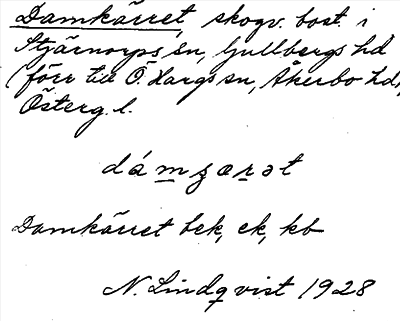 Damkärret, skogv. bost. i
Stjärnorps sn, Gullbergs hd
(förr till Ö. Hargs sn, Åkerbo hd),
Österg. l.
dámʒærət
Damkärret bek, ek, kb
N. Lindqvist 1928